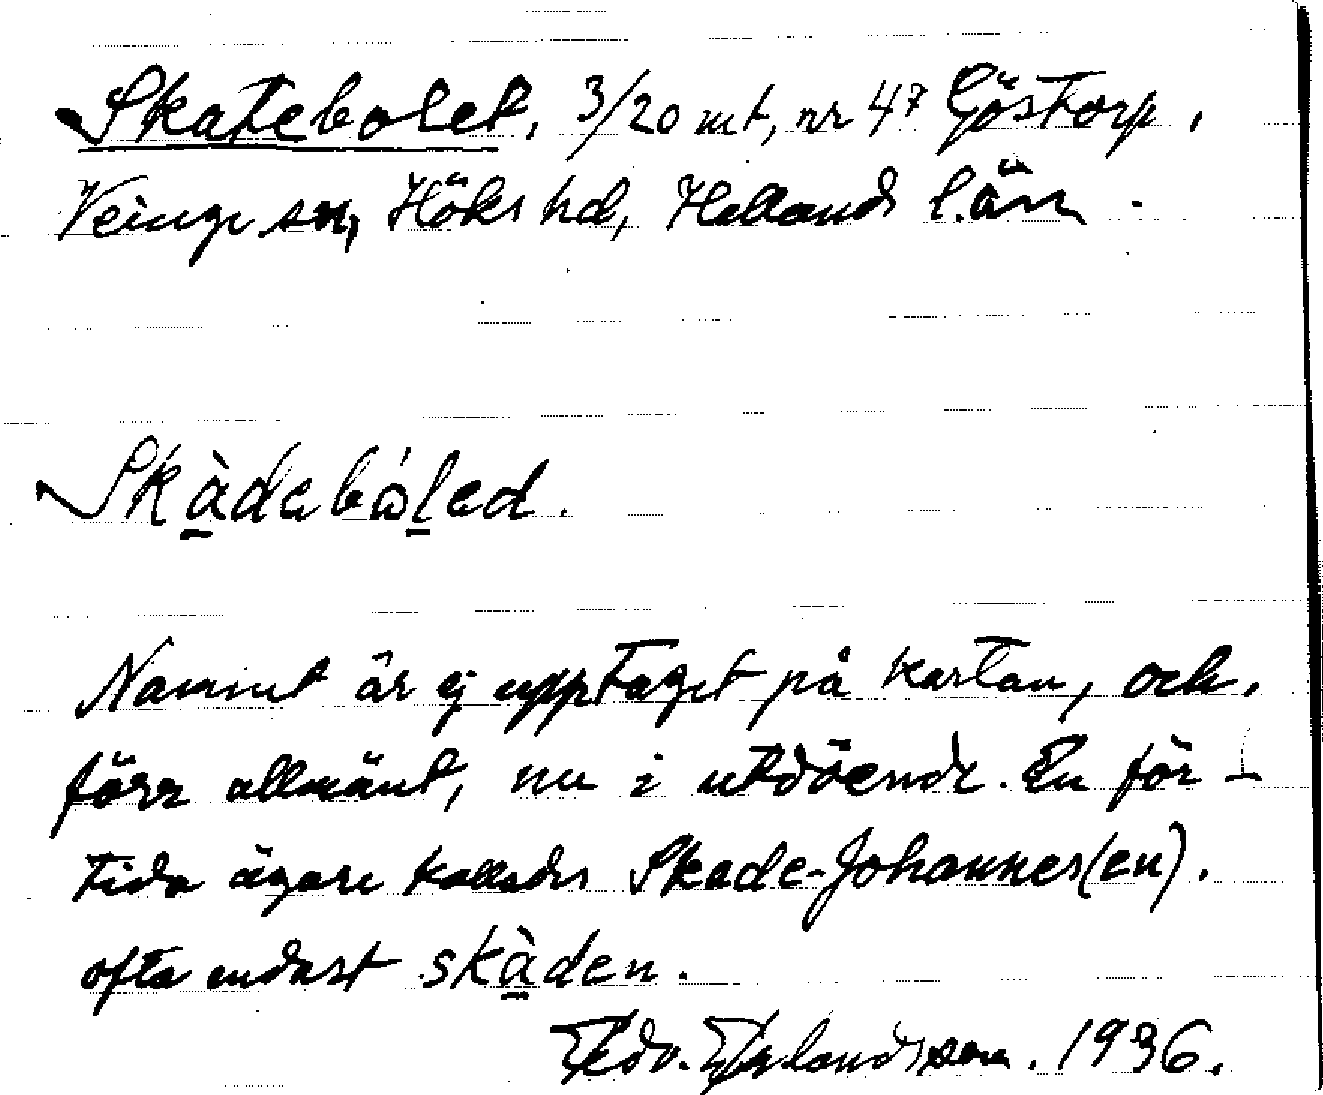 Skatebolet, 3/20 mt, nr 47 Göstorp,
Veinge sn, Höks hd, Hallands län.
Skàdebó̱led.
Namnet är ej upptaget på kartan, och,
förr allmänt, nu i utdöende. En för-
tida ägare kallades Skade-Johannes(en).
ofta endast skàden.
Edv. Erlandsson. 1936.